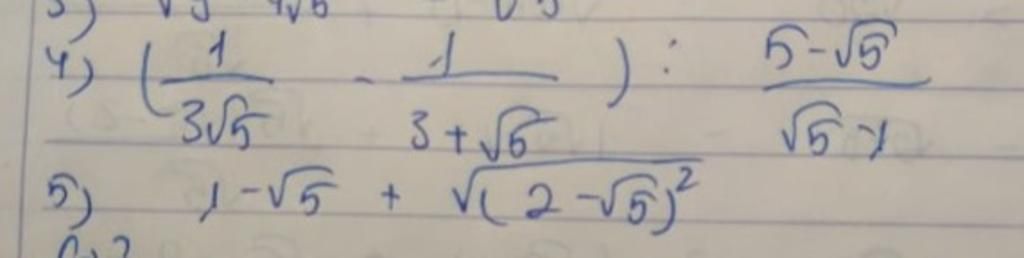 4) (1/3√5 - 1/3+√5) : 5-√5/√5-1
5) 1-√5 + √(2-√5)²